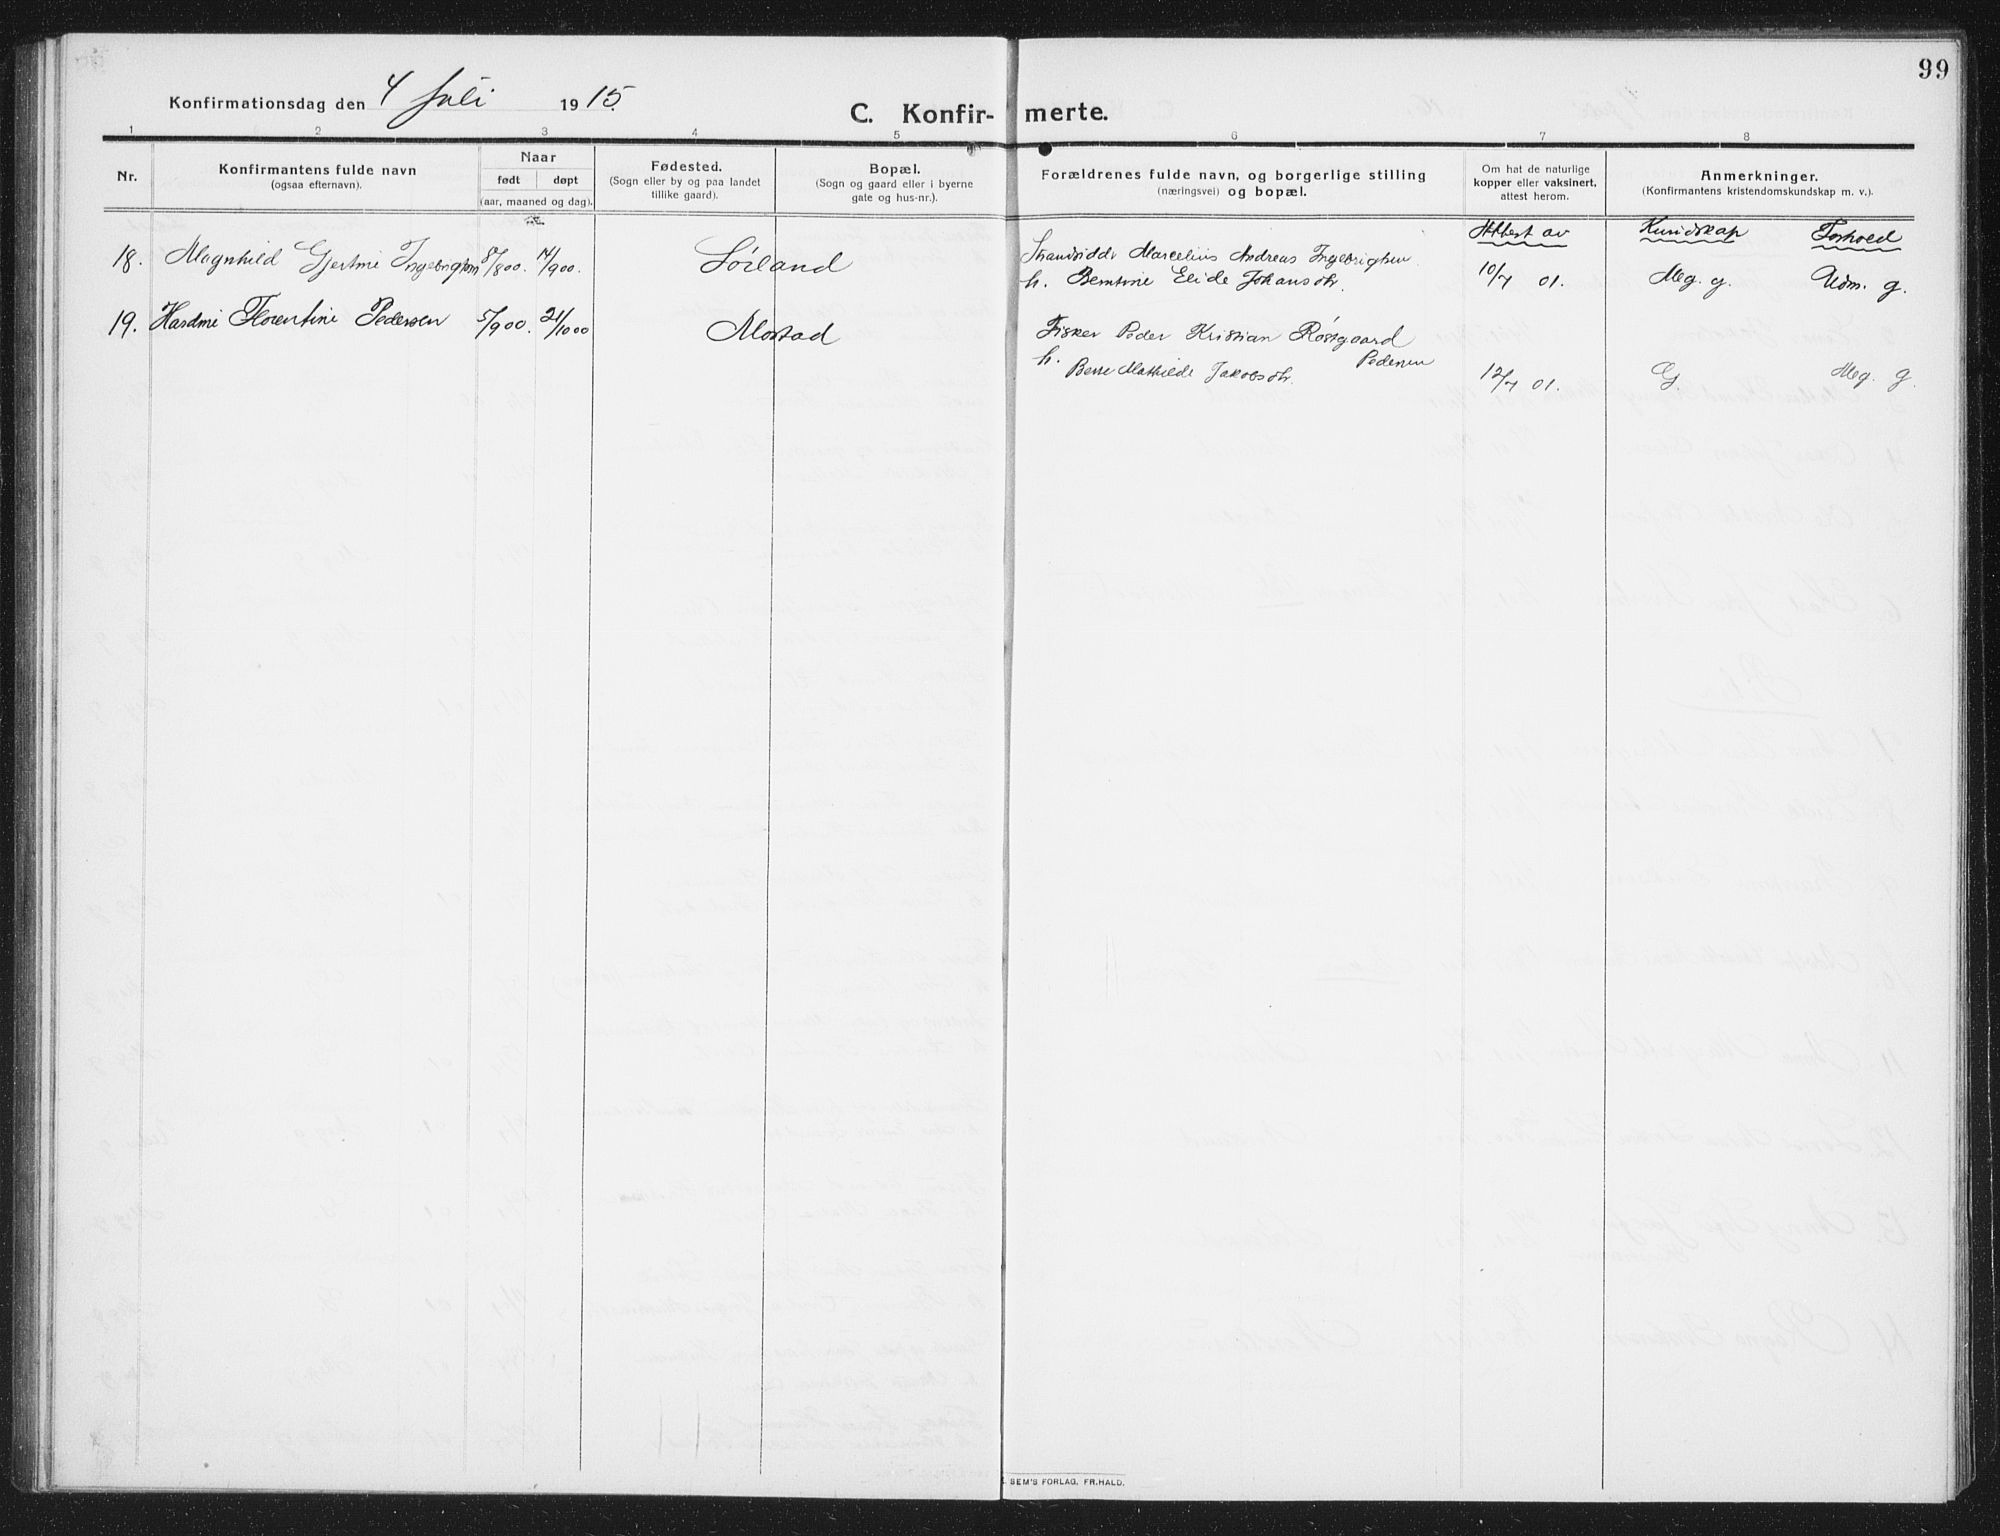 99
Konfirmationsdag den 4 Juli 1915.
C. Konfirmerte.
1 2 3 4 5 6 7 8
Nr.
Konfirmantens fulde navn
(ogsaa efternavn).
Naar
født døpt
(aar, maaned og dag).
Fødested.
(Sogn eller by og paa landet
tillike gaard).
Bopæl.
(Sogn og gaard eller i byerne
gate og hus-nr.).
Forældrenes fulde navn, og borgerlige stilling
(næringsvei) og bopæl.
Om hat de naturlige
kopper eller vaksinert,
attest herom.
Anmerkninger.
(Konfirmantens kristendomskundskap m. v.).
Attest av Kundskap Forhold
18. Magnhild Gjertine Ingebrigtsen 8/800. 14/900. Sørland Strandsidder Marcelius Andreas Ingebrigtsen
h. Berntine Elide Johansdtr. 10/7 01. Meg. g. Udm. g.
19. Hardine Florentine Pedersen 5/900. 21/1000 Mostad Fisker Peder Kristian Røstgaard
Pedersen
h. Mathilde Jakobsdtr. 12/7 01. G. Meg. g.
SEM'S FORLAG, FR.HALD.